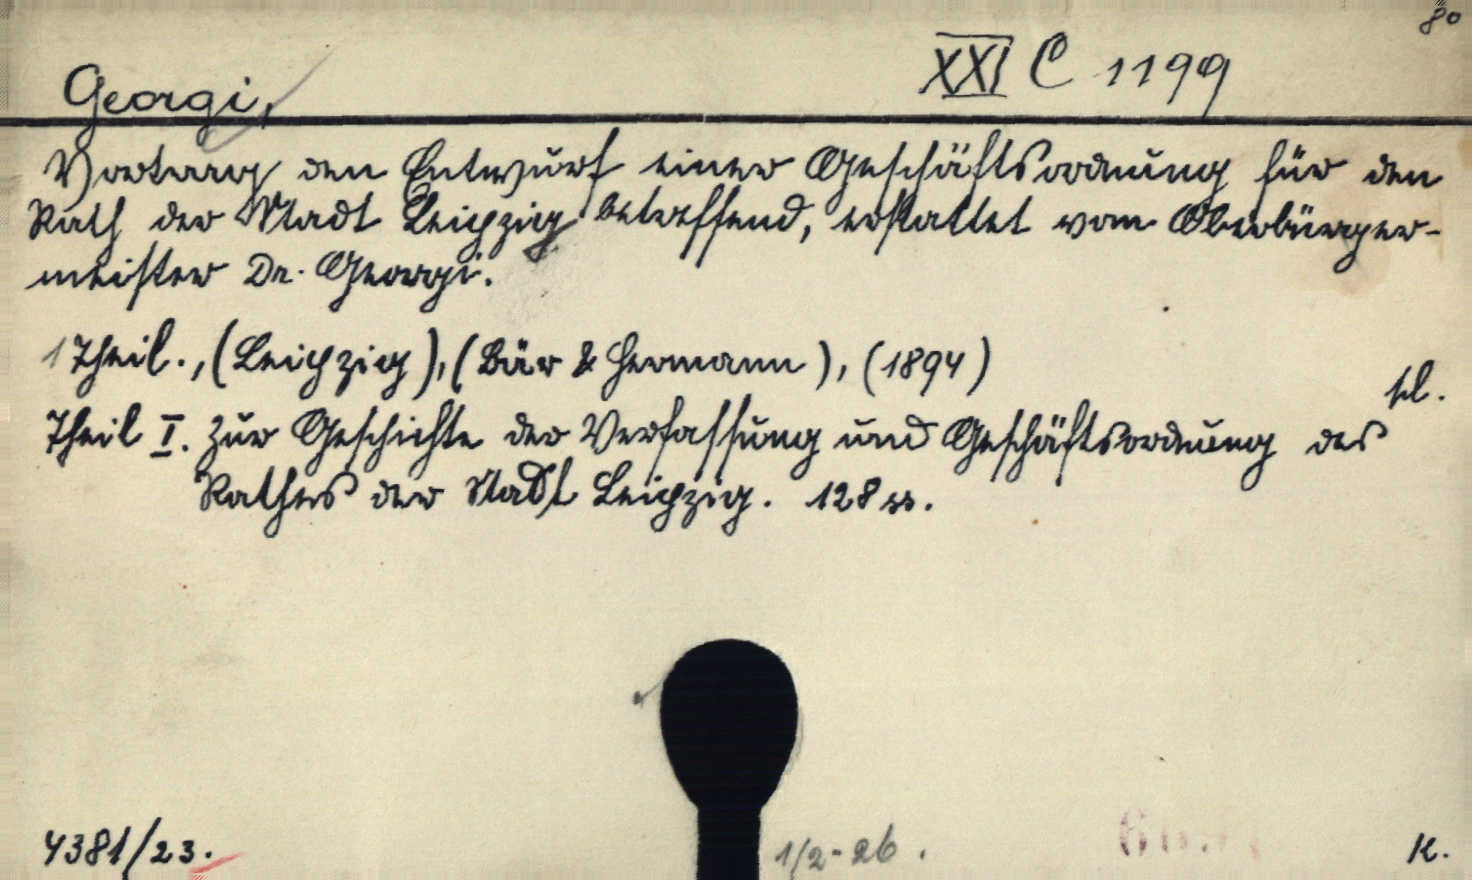 8°
XXI C 1199
Georgi,
Vortrag den Entwurf einer Geschäftsordnung für den
Rath der Stadt Leipzig betreffend, erstattet vom Oberbürger-
meister Dr. Georgi.
1 Theil., (Leipzig), (Bär & Hermann), (1894)
sd.
Theil I. Zur Geschichte der Verfassung und Geschäftsordnung des
Rathes der Stadt Leipzig. 128 ss.
4381/23.
1/2-26.
K.